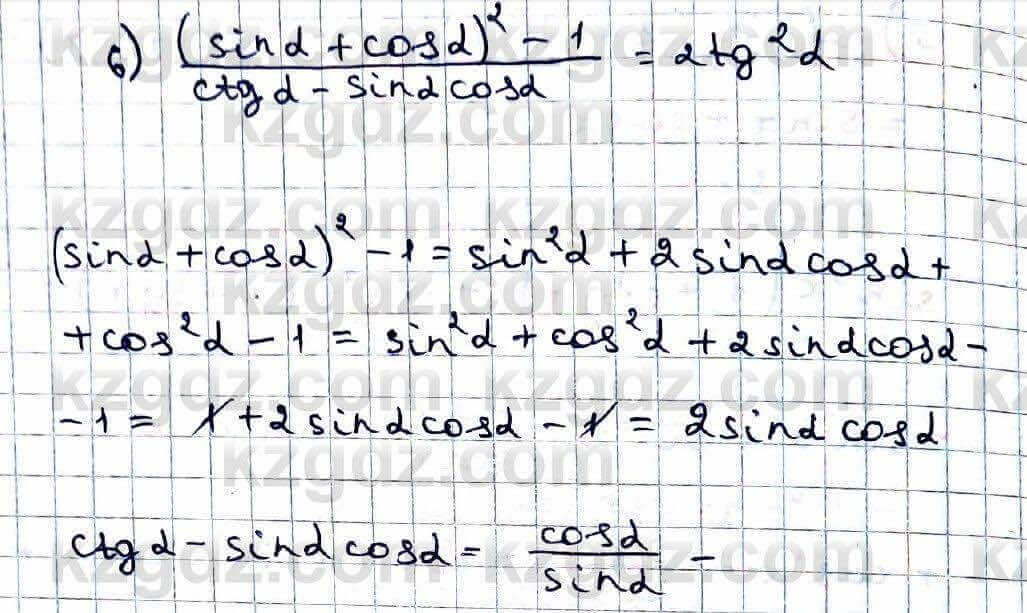 б) (sinα + cosα)² - 1 / ctgα - sinα cosα = 2tg²α
(sinα + cosα)² - 1 = sin²α + 2sinα cosα +
+ cos²α - 1 = sin²α + cos²α + 2sinαcosα -
- 1 = 1 + 2sinαcosα - 1 = 2sinα cosα
ctgα - sinα cosα = cosα / sinα -
kzgdz.com